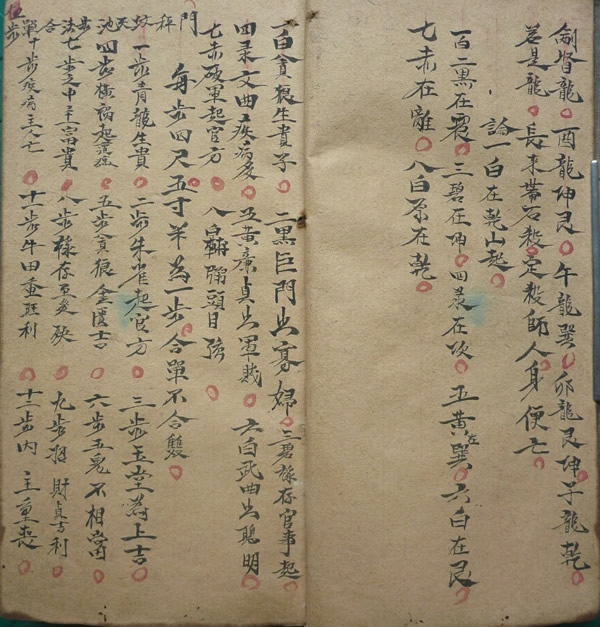 劊督龍 酉龍坤艮 午龍巽 卯龍艮坤子龍乾
若是龍 長來帶石殺 定殺師人身便亡
論一白在乾山起
一百二黑在震 三碧在坤 四录在坎 五黄在巽 六白在艮
七赤在離 八白原在乾
一白貪狼生貴子 二黑巨門出寡婦 三碧祿存官事起
四录文曲疾病多 五黄廉貞出軍戝 六白武曲出聪明
七赤破軍起官方 八白輔弼頭目强
每步四尺五寸半為一步合單不合雙
門
一步青龍生貴 二步朱雀起官方 三步玉堂為上吉
四步 五步貪狼金匱吉 六步五鬼不相當
七步之中主富貴 八步祿存至 九步招財貞吉利
單十步疾病主人亡 十一步牛田重旺利 十二步内主重喪